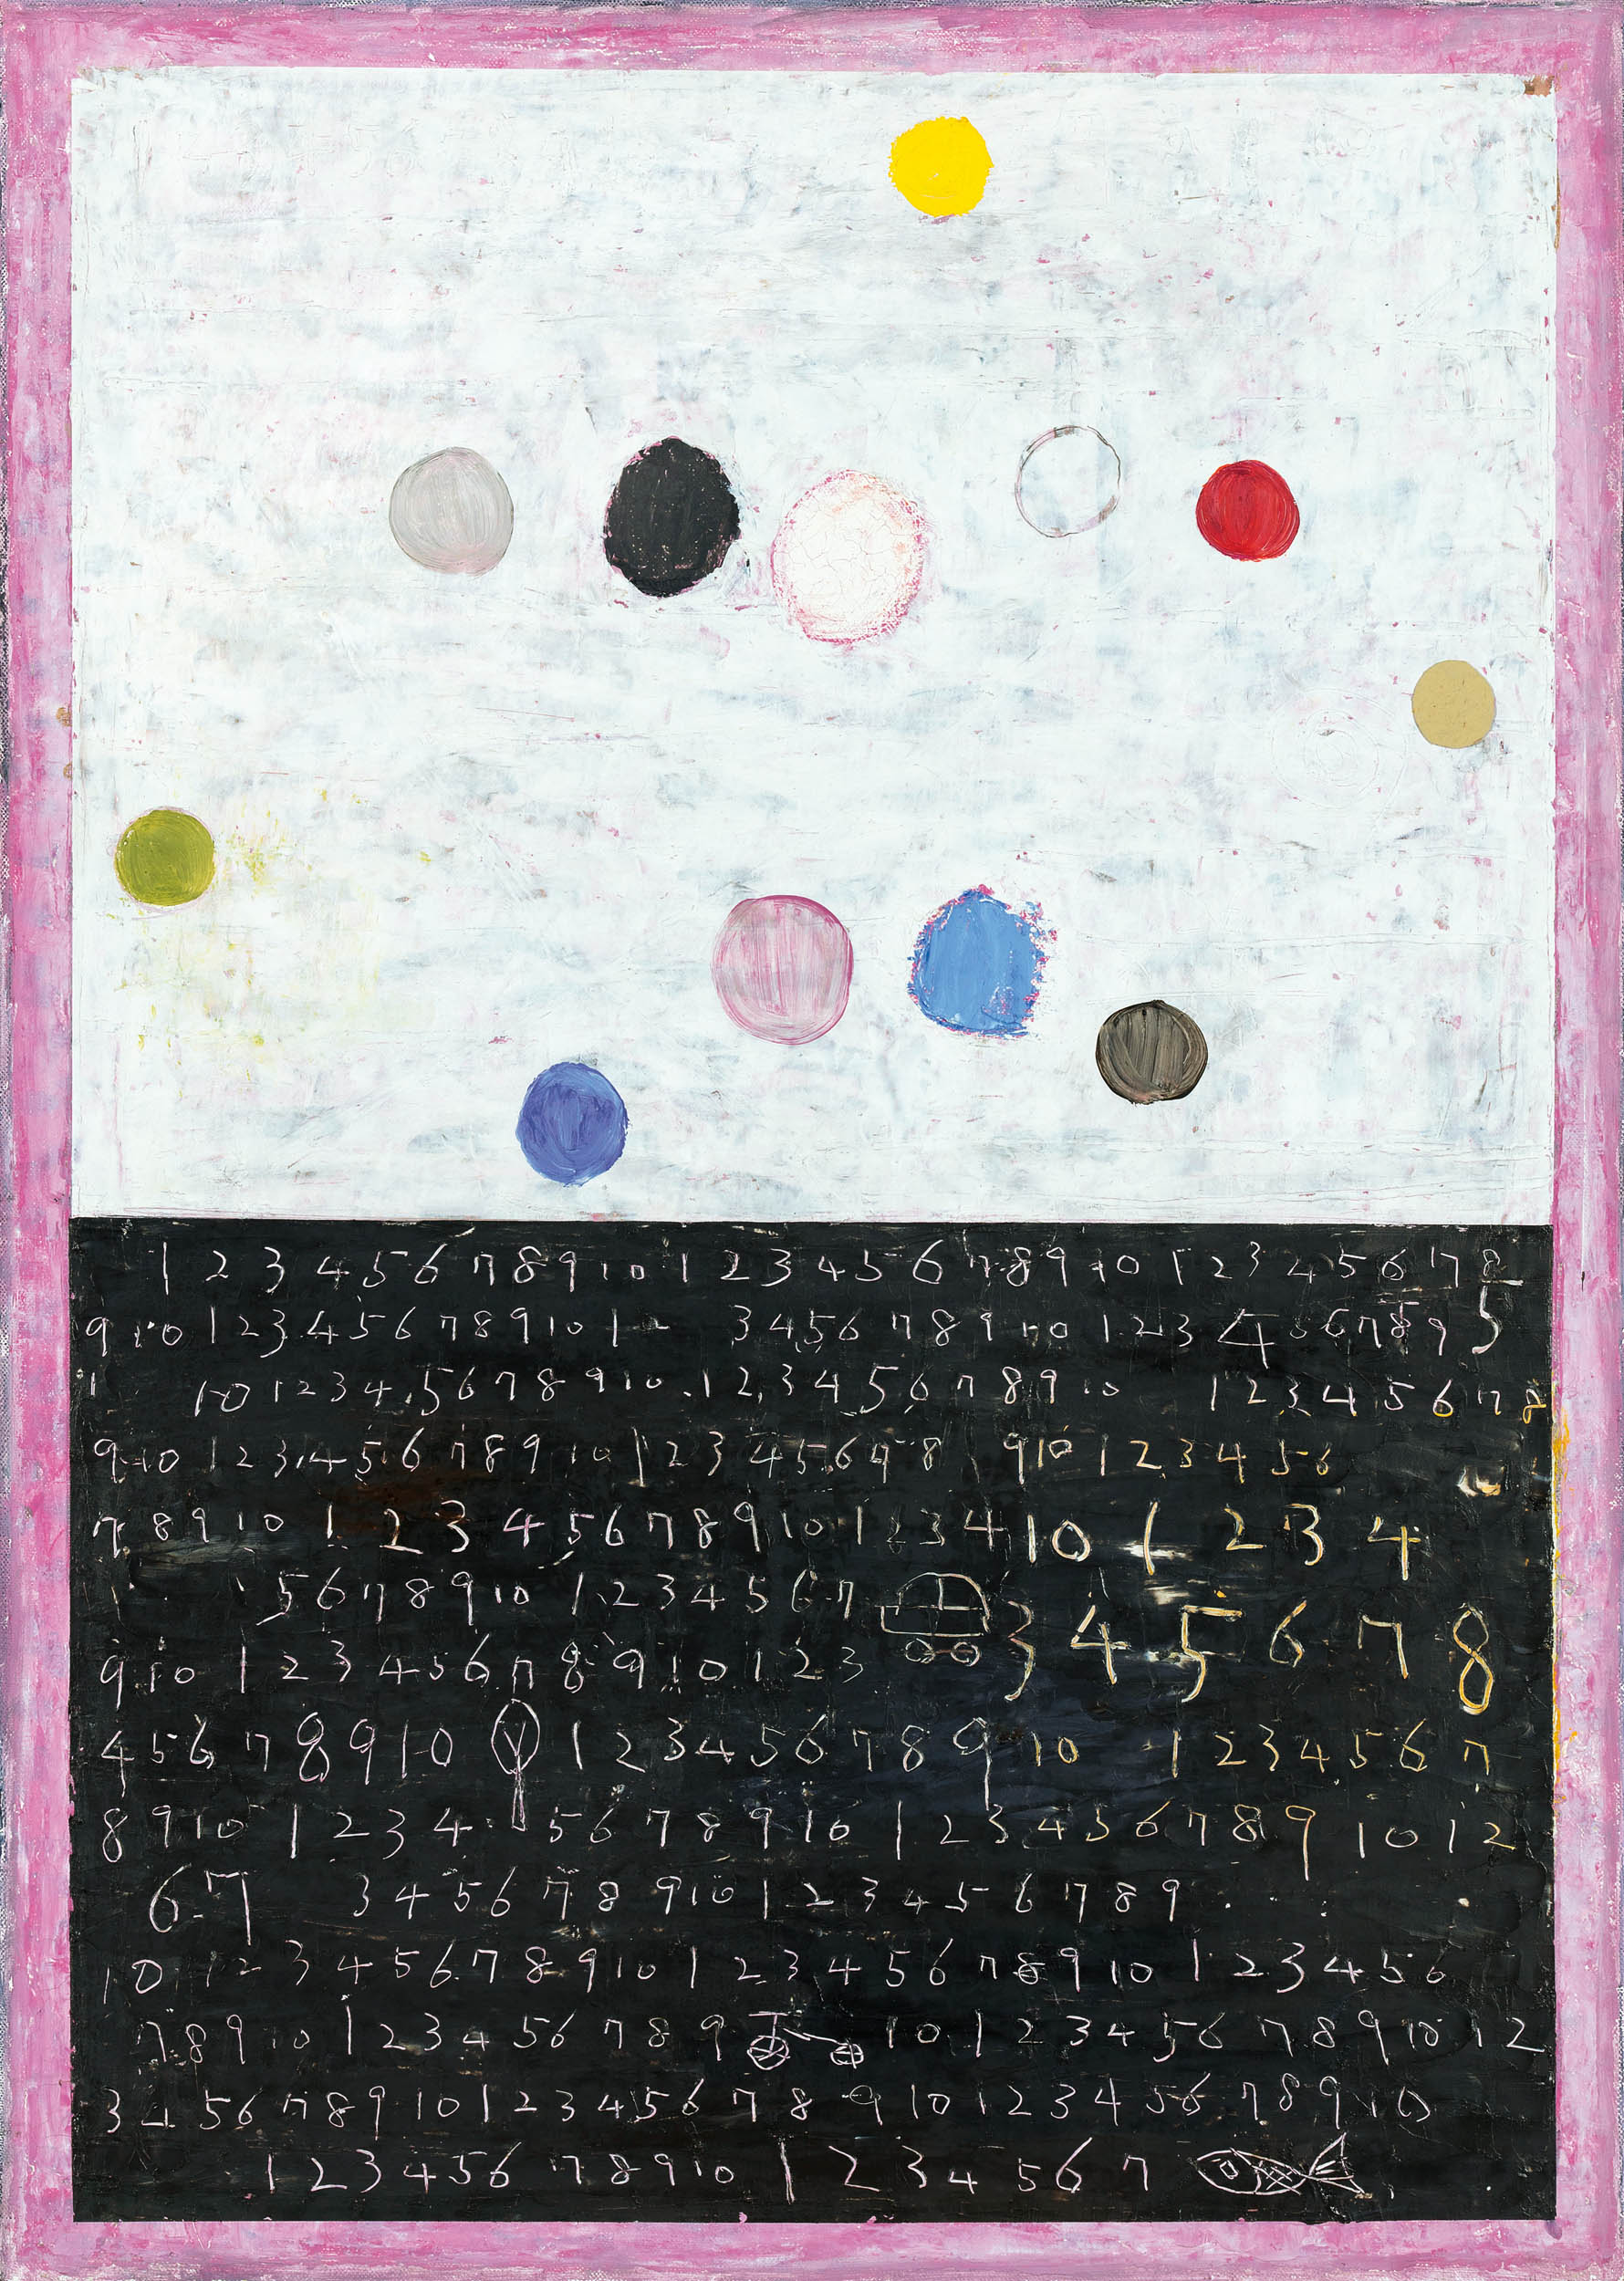 1 2 3 4 5 6 7 8 9 10 1 2 3 4 5 6 7 8 9 10 1 2 3 4 5 6 7 8
9 10 1 2 3 4 5 6 7 8 9 10 1 2 3 4 5 6 7 8 9 10 1 2 3 4 5 6 7 8 9 5
1 10 1 2 3 4 5 6 7 8 9 10 1 2 3 4 5 6 7 8 9 10 1 2 3 4 5 6 7 8
9 10 1 2 3 4 5 6 7 8 9 10 1 2 3 4 5 6 7 8 9 10 1 2 3 4 5 6
7 8 9 10 1 2 3 4 5 6 7 8 9 10 1 2 3 4 10 1 2 3 4
5 6 7 8 9 10 1 2 3 4 5 6 7 3 4 5 6 7 8
9 10 1 2 3 4 5 6 7 8 9 10 1 2 3
4 5 6 7 8 9 10 1 2 3 4 5 6 7 8 9 10 1 2 3 4 5 6 7
8 9 10 1 2 3 4 5 6 7 8 9 10 1 2 3 4 5 6 7 8 9 10 1 2
6 7 3 4 5 6 7 8 9 10 1 2 3 4 5 6 7 8 9
10 1 2 3 4 5 6 7 8 9 10 1 2 3 4 5 6 7 8 9 10 1 2 3 4 5 6
7 8 9 10 1 2 3 4 5 6 7 8 9 10 1 2 3 4 5 6 7 8 9 10 1 2
3 4 5 6 7 8 9 10 1 2 3 4 5 6 7 8 9 10 1 2 3 4 5 6 7 8 9 10
1 2 3 4 5 6 7 8 9 10 1 2 3 4 5 6 7